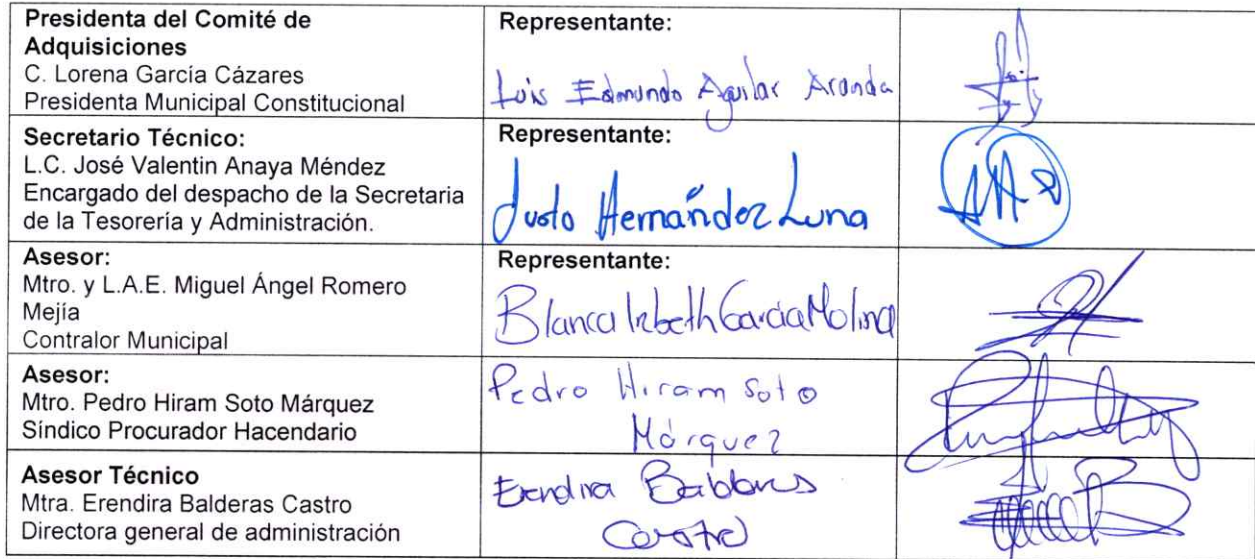 Presidenta del Comité de
Adquisiciones
C. Lorena García Cázares
Presidenta Municipal Constitucional
Representante:
Luis Edmundo Aguilar Aranda
Secretario Técnico:
L.C. José Valentin Anaya Méndez
Encargado del despacho de la Secretaria
de la Tesorería y Administración.
Representante:
Justo Hernández Luna
Asesor:
Mtro. y L.A.E. Miguel Ángel Romero
Mejía
Contralor Municipal
Representante:
Blanca Izbeth Garcia Molina
Asesor:
Mtro. Pedro Hiram Soto Márquez
Síndico Procurador Hacendario
Pedro Hiram Soto
Márquez
Asesor Técnico
Mtra. Erendira Balderas Castro
Directora general de administración
Erendira Balderas
Castro